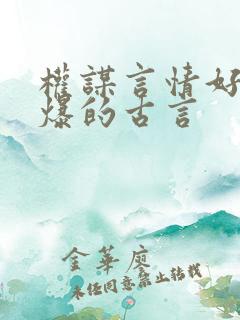 權謀言情好
爆的古言
金華廖
未经同意禁止转载